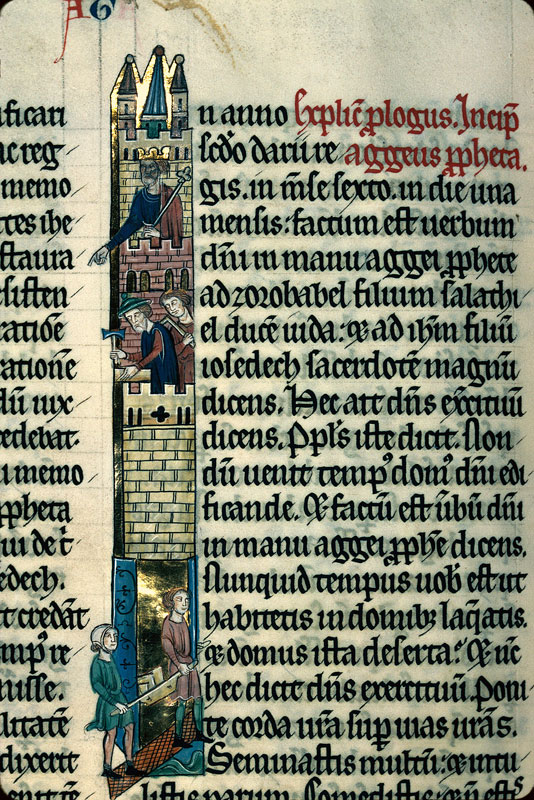 A G
ificari
ac reg
memo
ctes ihe
staura
sisten
ratiōe
ratiōne
dñi uix
cedebat.
u memo
ppheta
edech.
t credāt
nisse.
litatē
dixerit
n anno Explic̄ plogus. Incip̄
sc̄do darii re aggeus ppheta.
gis. in m̄se sexto. in die una
mensis: factum est uerbum
dñi in manu aggei pphete
ad zorobabel filium salathi
el ducē iuda: ⁊ ad ih̄m filiū
iosedech sacerdotē magnū
dicens. Hec ait dñs exc̄ituū
dicens. Ppl̄s iste dicit. Non
dū uenit temp᷒ dom᷒ dñi edi
ficande. Et factū est ūbū dñi
in manu aggei pph̄e dicens.
Nunquid tempus uob̄ est ut
habitetis in domib᷒ laq̄atis.
⁊ domus ista deserta? Et nc̄
hec dicit dñs exercituū. Poni
te corda ur̄a sup̄ uias ur̄as.
Seminastis multū: ⁊ intu
listis parum. Comedistis: ⁊ nō estis